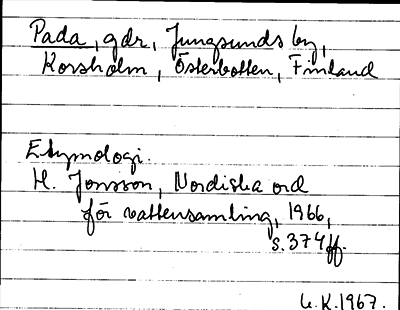 Pada, gdr, Jungsunds by,
Korsholm, Österbotten, Finland
Etymologi.
H. Jonsson, Nordiska ord
för vattensamling, 1966,
s. 374 ff.
U.K. 1967.